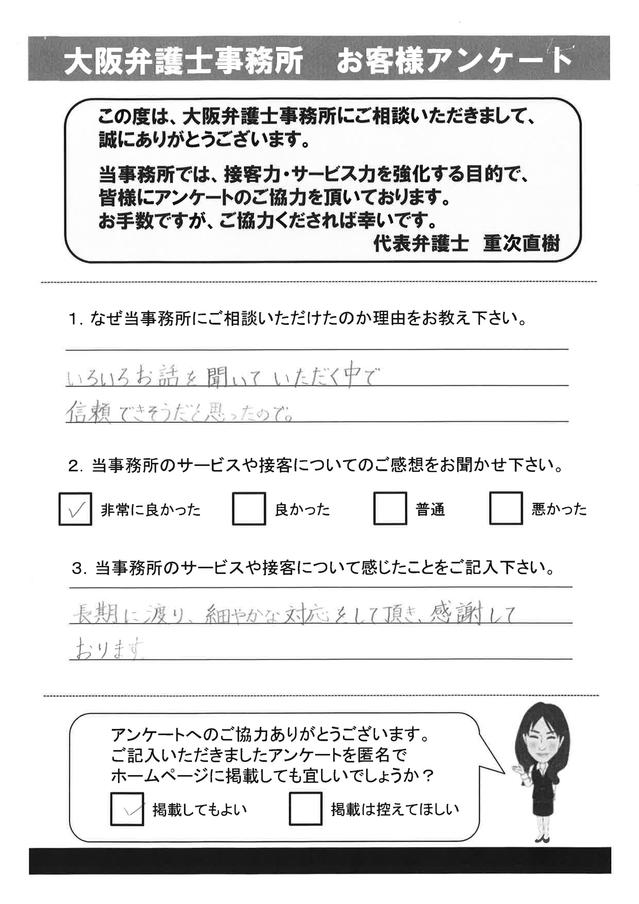 大阪弁護士事務所　お客様アンケート
この度は、大阪弁護士事務所にご相談いただきまして、
誠にありがとうございます。
当事務所では、接客力・サービス力を強化する目的で、
皆様にアンケートのご協力を頂いております。
お手数ですが、ご協力くだされば幸いです。
代表弁護士　重次直樹
1．なぜ当事務所にご相談いただけたのか理由をお教え下さい。
いろいろお話を聞いていただく中で
信頼できそうだと思ったので。
2．当事務所のサービスや接客についてのご感想をお聞かせ下さい。
✓ 非常に良かった　良かった　普通　悪かった
3．当事務所のサービスや接客について感じたことをご記入下さい。
長期に渡り、細やかな対応をして頂き、感謝して
おります
アンケートへのご協力ありがとうございます。
ご記入いただきましたアンケートを匿名で
ホームページに掲載しても宜しいでしょうか？
✓ 掲載してもよい　掲載は控えてほしい